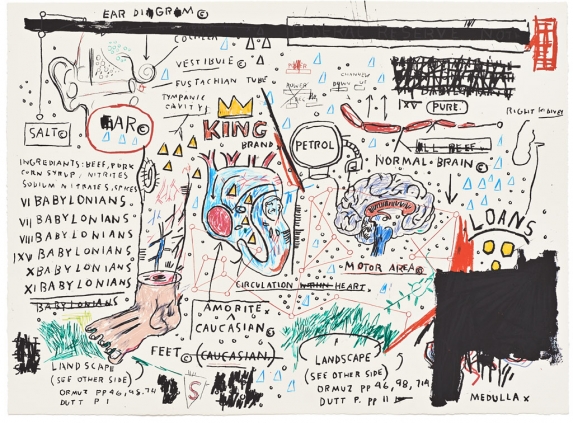 EAR DIAGRAM ©
VESTIBULE ©
EUSTACHIAN TUBE
TYMPANIC
CAVITY
SALT©
EAR©
KING
BRAND
PETROL
LXV PURE.
ALL BEEF
NORMAL BRAIN ©
RIGHT KIDNEY
LOANS
INGREDIANTS: BEEF, PORK
CORN SYRUP, NITRITES
SODIUM NITRATES, SPICES
VI BABYLONIANS.
VII BABYLONIANS.
VIII BABYLONIANS
IXV BABYLONIANS
X BABYLONIANS
XI BABYLONIANS
BABYLONIANS
MOTOR AREA©
CIRCULATION WITHIN HEART.
AMORITE x
CAUCASIAN ©
FEET © (CAUCASIAN)
LANDSCAPE
(SEE OTHER SIDE)
ORMUZ PP 46, 98, 714
DUTT P. 1
S
LANDSCAPE
(SEE OTHER SIDE)
ORMUZ PP 46, 98, 714
DUTT P. PP 11
MEDULLA x